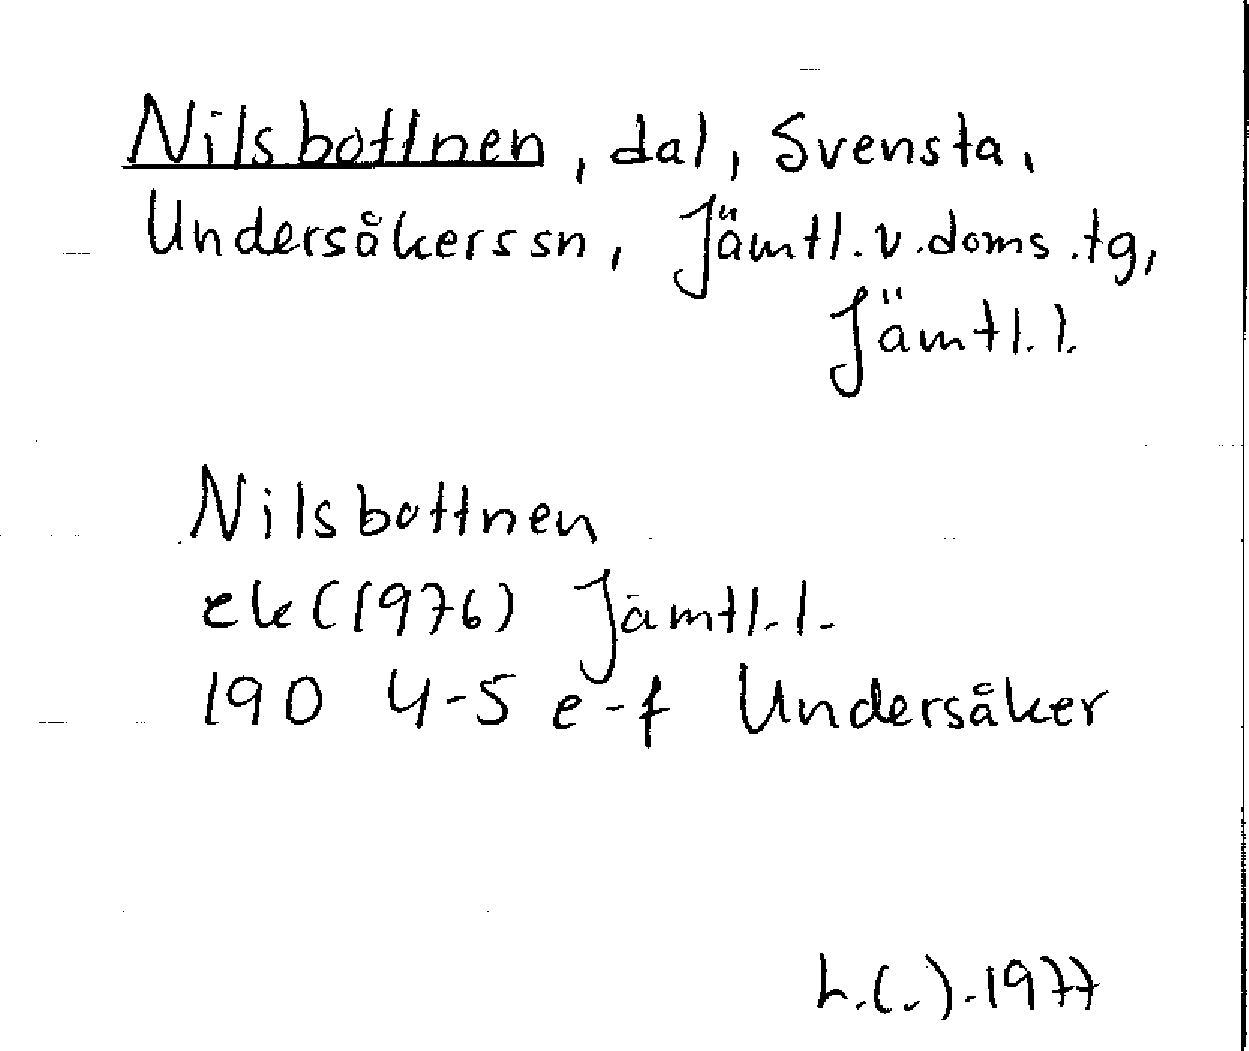 Nilsbottnen, dal, Svensta,
Undersåkers sn, Jämtl. v. doms. tg,
Jämtl. l.
Nilsbottnen
ek (1976) Jämtl. l.
190 4-5 e-f Undersåker
1977